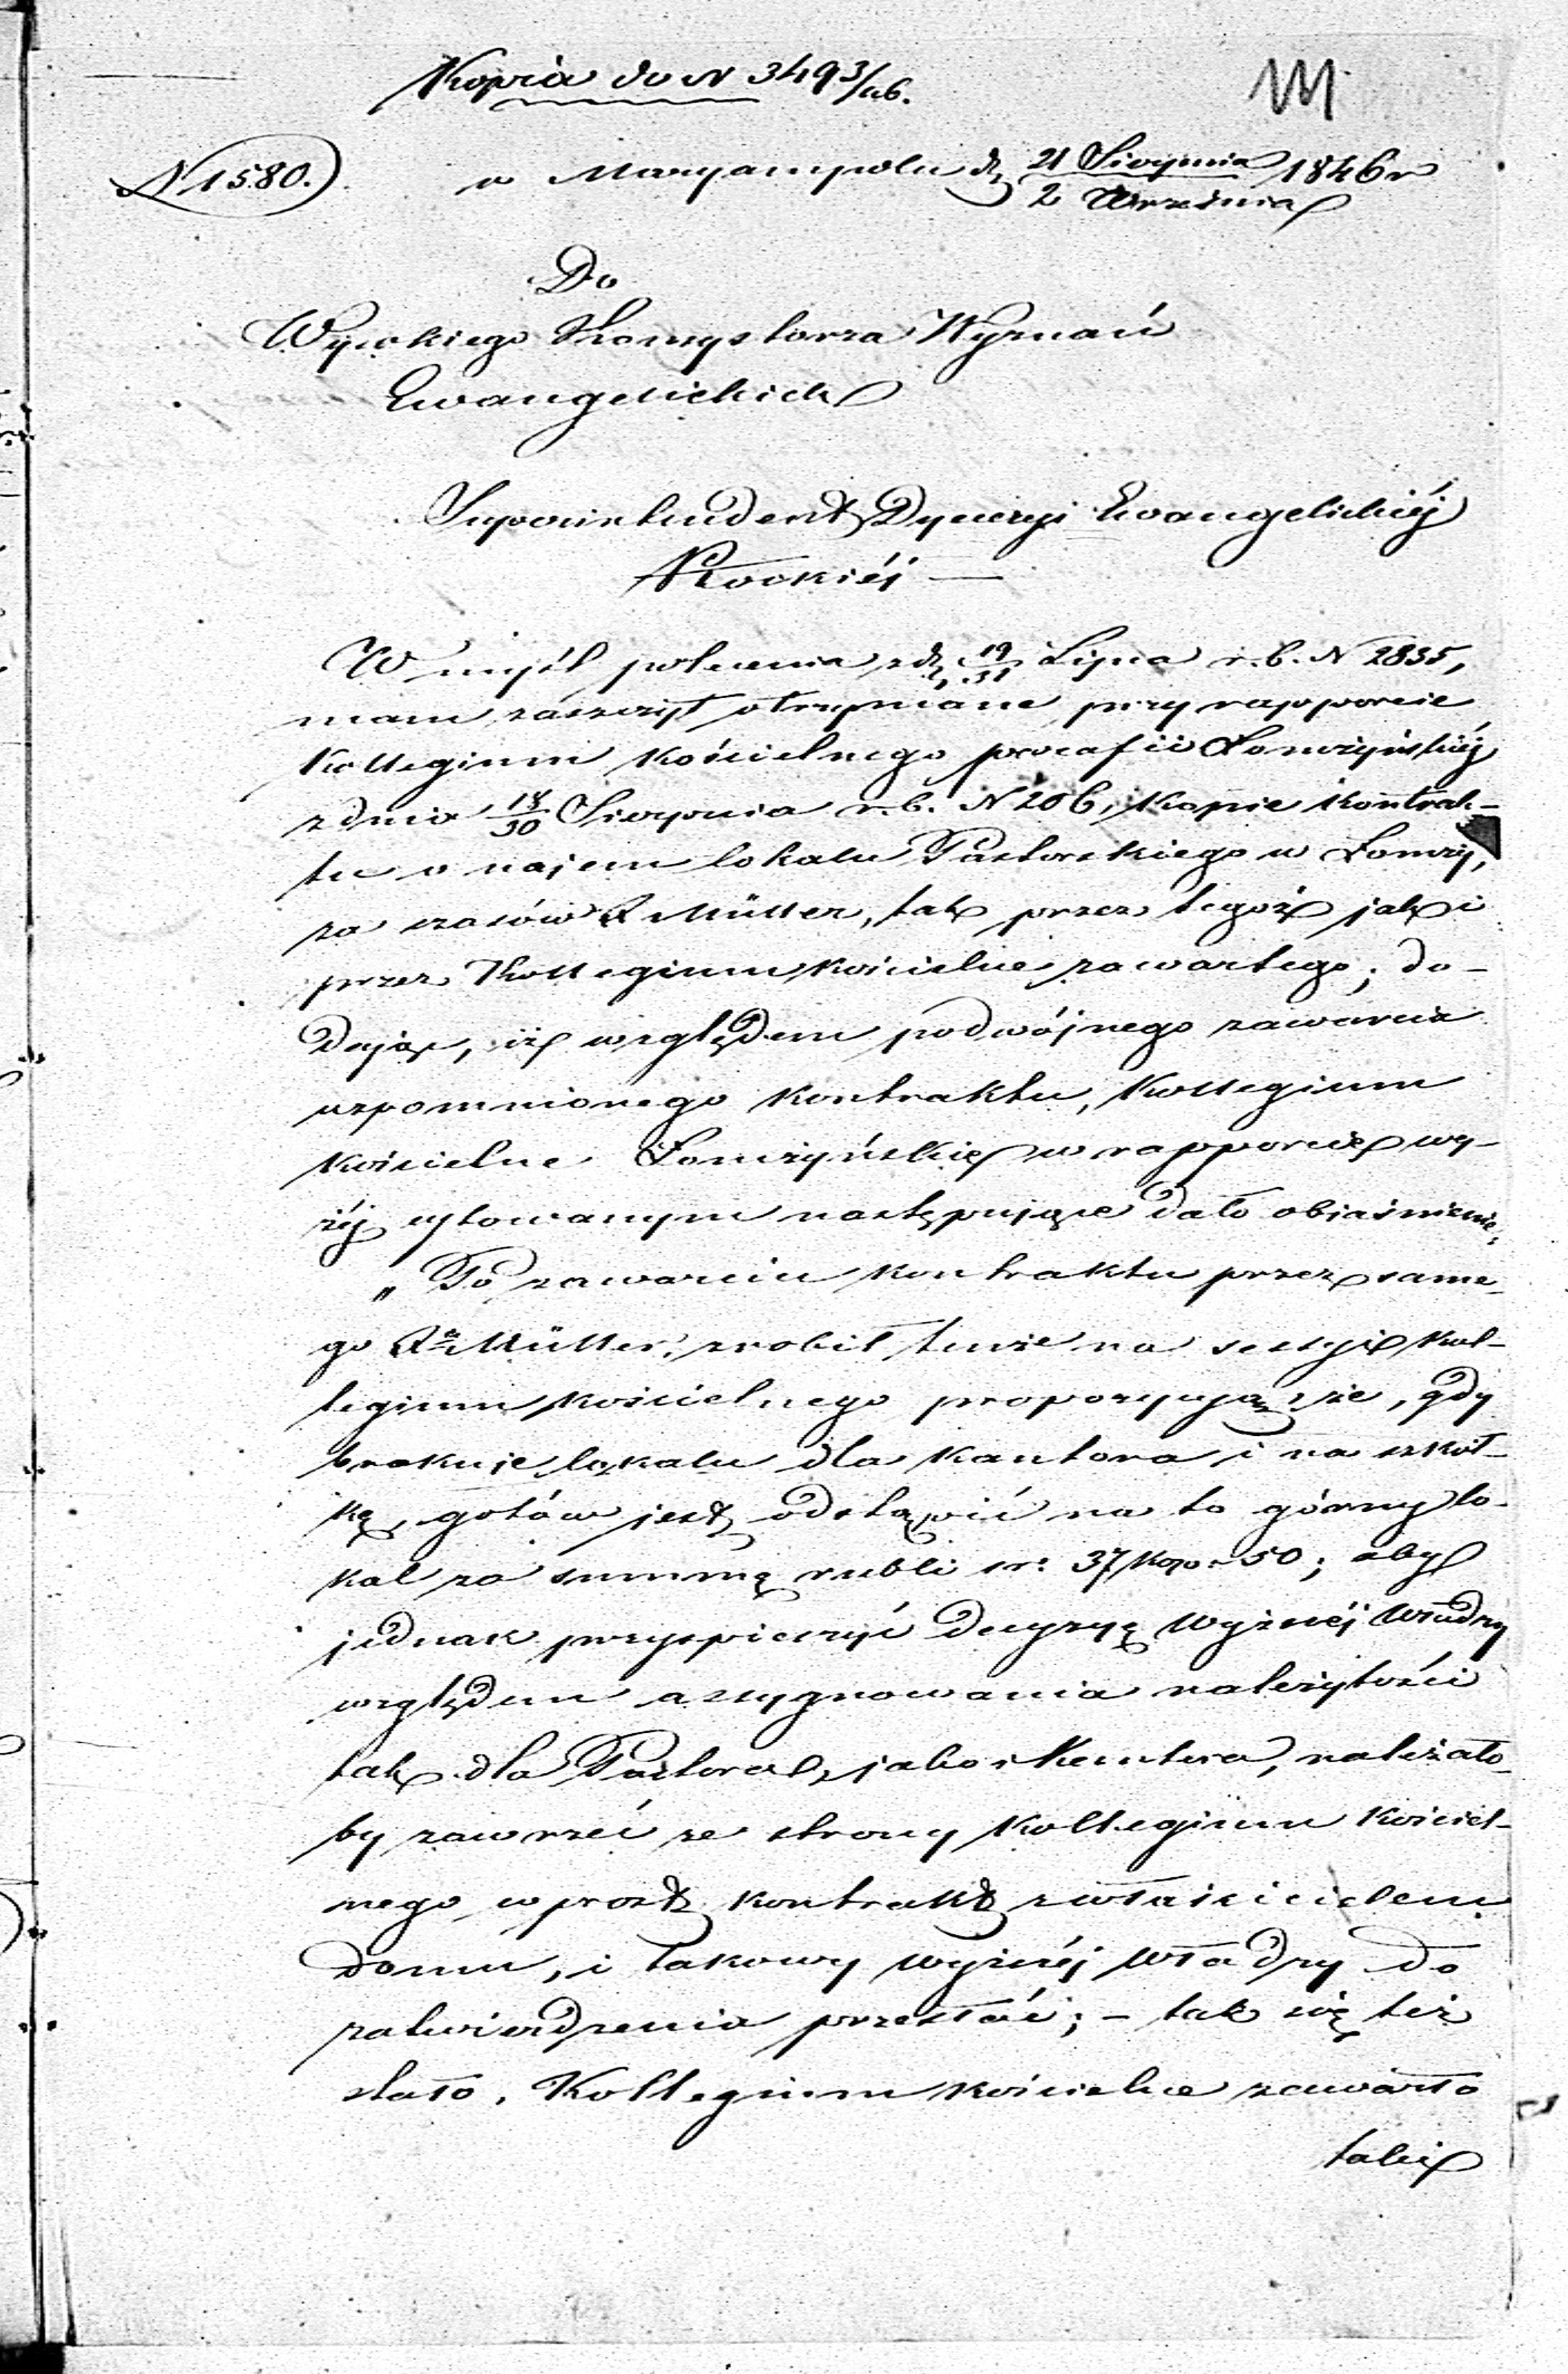 Kopia do N 3493/ab.
N 1580.
w Maryampolu d. 21 Sierpnia / 2 Września 1846 r
Do
Wysokiego Konsystorza Wyznań
Ewangelickich
Superintendent Dyecezyi Ewangelickiéj
Płockiéj —
W myśl polecenia z d. 19/31 Lipca r. b. N 2835,
mam zaszczyt otrzymane przy rapporcie
Kollegium Kościelnego parafii Łomżyńskiéj
z dnia 18/30 Sierpnia r. b. N 206, Kopie Kontrak-
tu o najem lokalu Pastorskiego w Łomży,
za czasów X Müller, tak przez tegoż jak i
przez Kollegium Kościelne zawartego; do-
dając, iż względem podwójnego zawarcia
wzpomnionego Kontraktu, Kollegium
Kościelne Łomżyńskie w rapporcie wy-
żéj cytowanym następujące dało objaśnienie;
„Po zawarciu Kontraktu przez same-
go Xa Müller, zrobił tenże na sessyi Kol-
legium Kościelnego propozycyją, że, gdy
brakuje lokalu dla Kantora i na szkół-
kę, gotów jest odstąpić na to górny lo-
kal za summę rubli sr. 37 kop. 50; aby
jednak przyspieszyć decyzyę Wyższéj Władzy
względem assygnowania należytości
tak dla Pastora, jako i Kantora, należało-
by zawrzeć ze strony Kollegium Kościel-
nego wprost kontrakt z właścicielem
domu, i takowy wyższéj Władzy do
zatwierdzenia przesłać; – tak się też
stało. Kollegium Kościelne zawarło
takiż